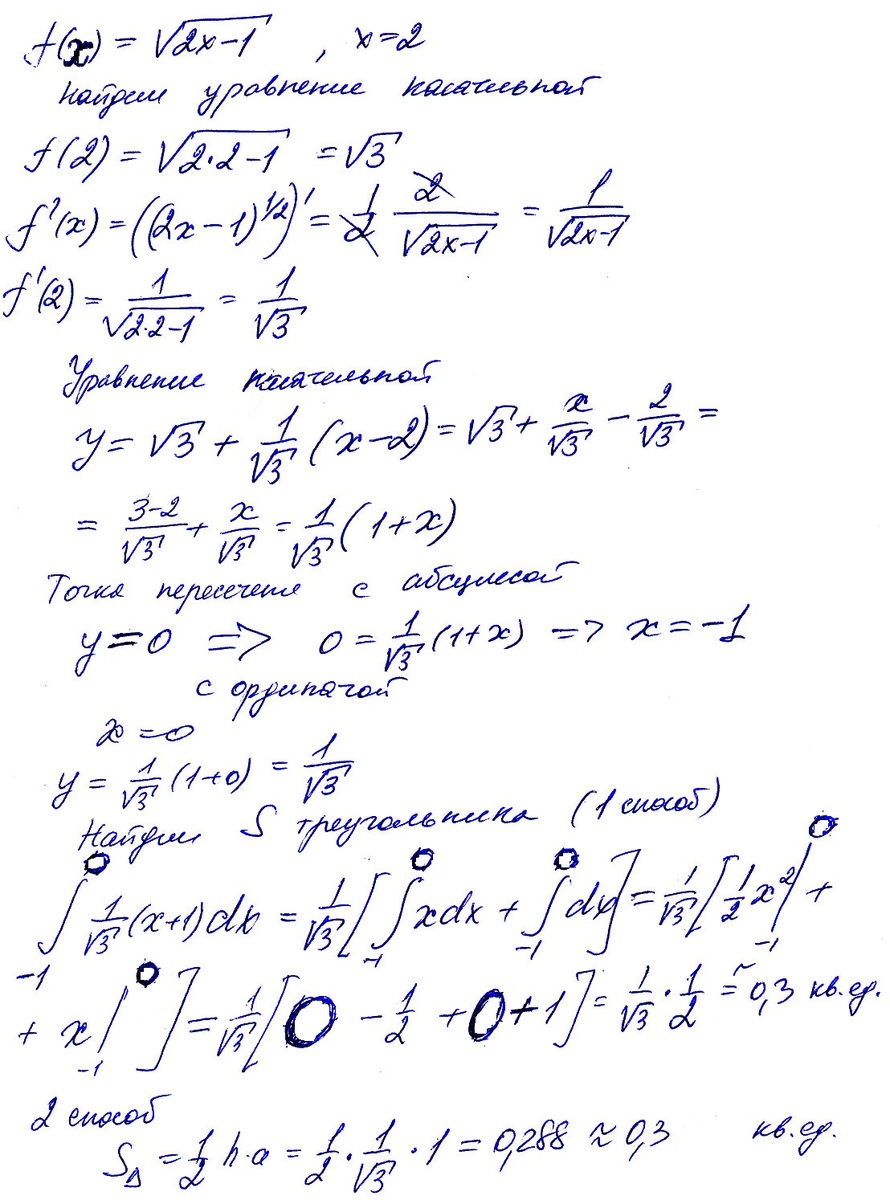 f(x) = √(2x-1) , x=2
найдем уравнение касательной
f(2) = √(2·2-1) = √3
f'(x) = ((2x-1)^(1/2))' = 1/2 · 2/√(2x-1) = 1/√(2x-1)
f'(2) = 1/√(2·2-1) = 1/√3
Уравнение касательной
y = √3 + 1/√3 (x-2) = √3 + x/√3 - 2/√3 =
= (3-2)/√3 + x/√3 = 1/√3 (1+x)
Точка пересечения с абсциссой
y=0 => 0 = 1/√3 (1+x) => x = -1
с ординатой
x=0
y = 1/√3 (1+0) = 1/√3
Найдем S треугольника (1 способ)
∫_{-1}^{0} 1/√3 (x+1)dx = 1/√3 [∫_{-1}^{0} xdx + ∫_{-1}^{0} dx] = 1/√3 [1/2 x² |_{-1}^{0} +
+ x |_{-1}^{0} ] = 1/√3 [0 - 1/2 + 0 + 1] = 1/√3 · 1/2 ≅ 0,3 кв.ед.
2 способ
S_Δ = 1/2 h·a = 1/2 · 1/√3 · 1 = 0,288 ≈ 0,3 кв.ед.